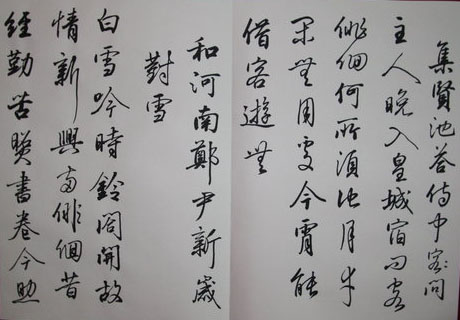 集賢池答侍中客問
主人晚入皇城宿问客
徘徊何所須池月幸
閑無用處今宵能
借客遊無
和河南鄭尹新歲
對雪
白雪吟時鈴閣開故
情新興兩徘徊昔
經勤苦照書卷今助